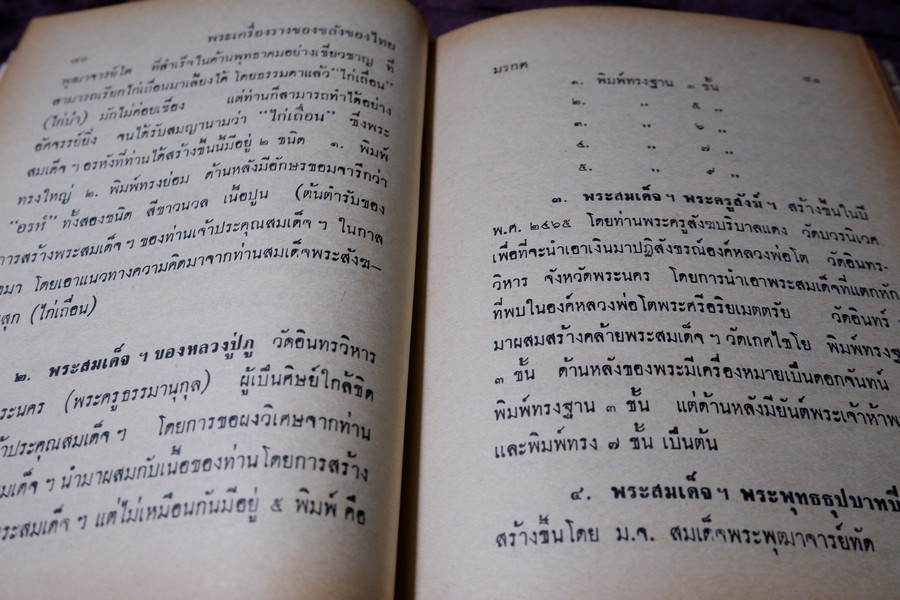 ๘๐ พระเครื่องรางของขลังของไทย
พุฒาจารย์โต ที่สำเร็จในด้านพุทธาคมอย่างเชี่ยวชาญ ที่
สามารถเรียกไก่เถื่อนมาเลี้ยงได้ โดยธรรมดาแล้ว "ไก่เถื่อน"
(ไก่ป่า) มักไม่ค่อยเชื่อง แต่ท่านก็สามารถทำได้อย่าง
อัศจรรย์ยิ่ง จนได้รับสมญานามว่า "ไก่เถื่อน" ซึ่งพระ
สมเด็จ ฯ อรหังที่ท่านได้สร้างขึ้นนี้มีอยู่ ๒ ชนิด ๑. พิมพ์
ทรงใหญ่ ๒. พิมพ์ทรงย่อม ด้านหลังมีอักษรขอมจารึกว่า
"อรหํ" ทั้งสองชนิด สีขาวนวล เนื้อปูน (ต้นตำรับของ
การสร้างพระสมเด็จ ฯ ของท่านเจ้าประคุณสมเด็จ ฯ ในกาล
มา โดยเอาแนวทางความคิดมาจากท่านสมเด็จพระสังฆ-
สุก (ไก่เถื่อน)
๒. พระสมเด็จ ฯ ของหลวงปู่ภู วัดอินทรวิหาร
ระนคร (พระครูธรรมานุกุล) ผู้เป็นศิษย์ใกล้ชิด
จ้าประคุณสมเด็จ ฯ โดยการขอผงวิเศษจากท่าน
มเด็จ ฯ นำมาผสมกับเนื้อของท่านโดยการสร้าง
ระสมเด็จ ฯ แต่ไม่เหมือนกันมีอยู่ ๕ พิมพ์ คือ
มรกต ๘๑
๑. พิมพ์ทรงฐาน ๓ ชั้น
๒. ,, ๕ ,,
๓. ,, ๖ ,,
๔. ,, ๗ ,,
๕. ,, ๙ ,,
๓. พระสมเด็จ ฯ พระครูสังฆ์ ฯ สร้างขึ้นในปี
พ.ศ. ๒๔๖๕ โดยท่านพระครูสังฆบริบาลแดง วัดบวรนิเวศ
เพื่อที่จะนำเอาเงินมาปฏิสังขรณ์องค์หลวงพ่อโต วัดอินทร-
วิหาร จังหวัดพระนคร โดยการนำเอาพระสมเด็จที่แตกหัก
ที่พบในองค์หลวงพ่อโตพระศรีอริยเมตตรัย วัดอินทร์ ฯ
มาผสมสร้างคล้ายพระสมเด็จ ฯ วัดเกศไชโย พิมพ์ทรงฐ
๓ ชั้น ด้านหลังของพระมีเครื่องหมายเป็นดอกจันทน์
พิมพ์ทรงฐาน ๓ ชั้น แต่ด้านหลังมียันต์พระเจ้าห้าพ
และพิมพ์ทรง ๗ ชั้น เป็นต้น
๔. พระสมเด็จ ฯ พระพุทธธุปบาทปี
สร้างขึ้นโดย ม.จ. สมเด็จพระพุฒาจารย์ทัด